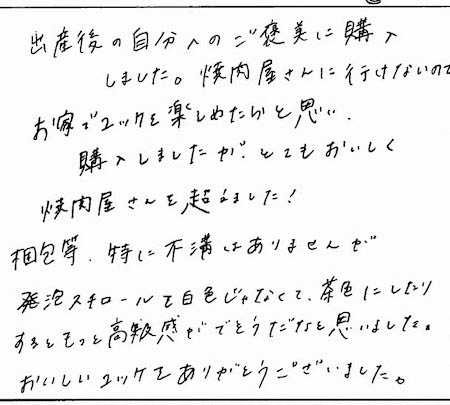 出産後の自分へのご褒美に購入
しました。焼肉屋さんに行けないので
お家でユッケを楽しめたらと思い、
購入しましたが、とてもおいしく
焼肉屋さんを超えました!
梱包等、特に不満はありませんが
発泡スチロールを白色じゃなくて、茶色にしたり
するともっと高級感がでそうだなと思いました。
おいしいユッケをありがとうございました。